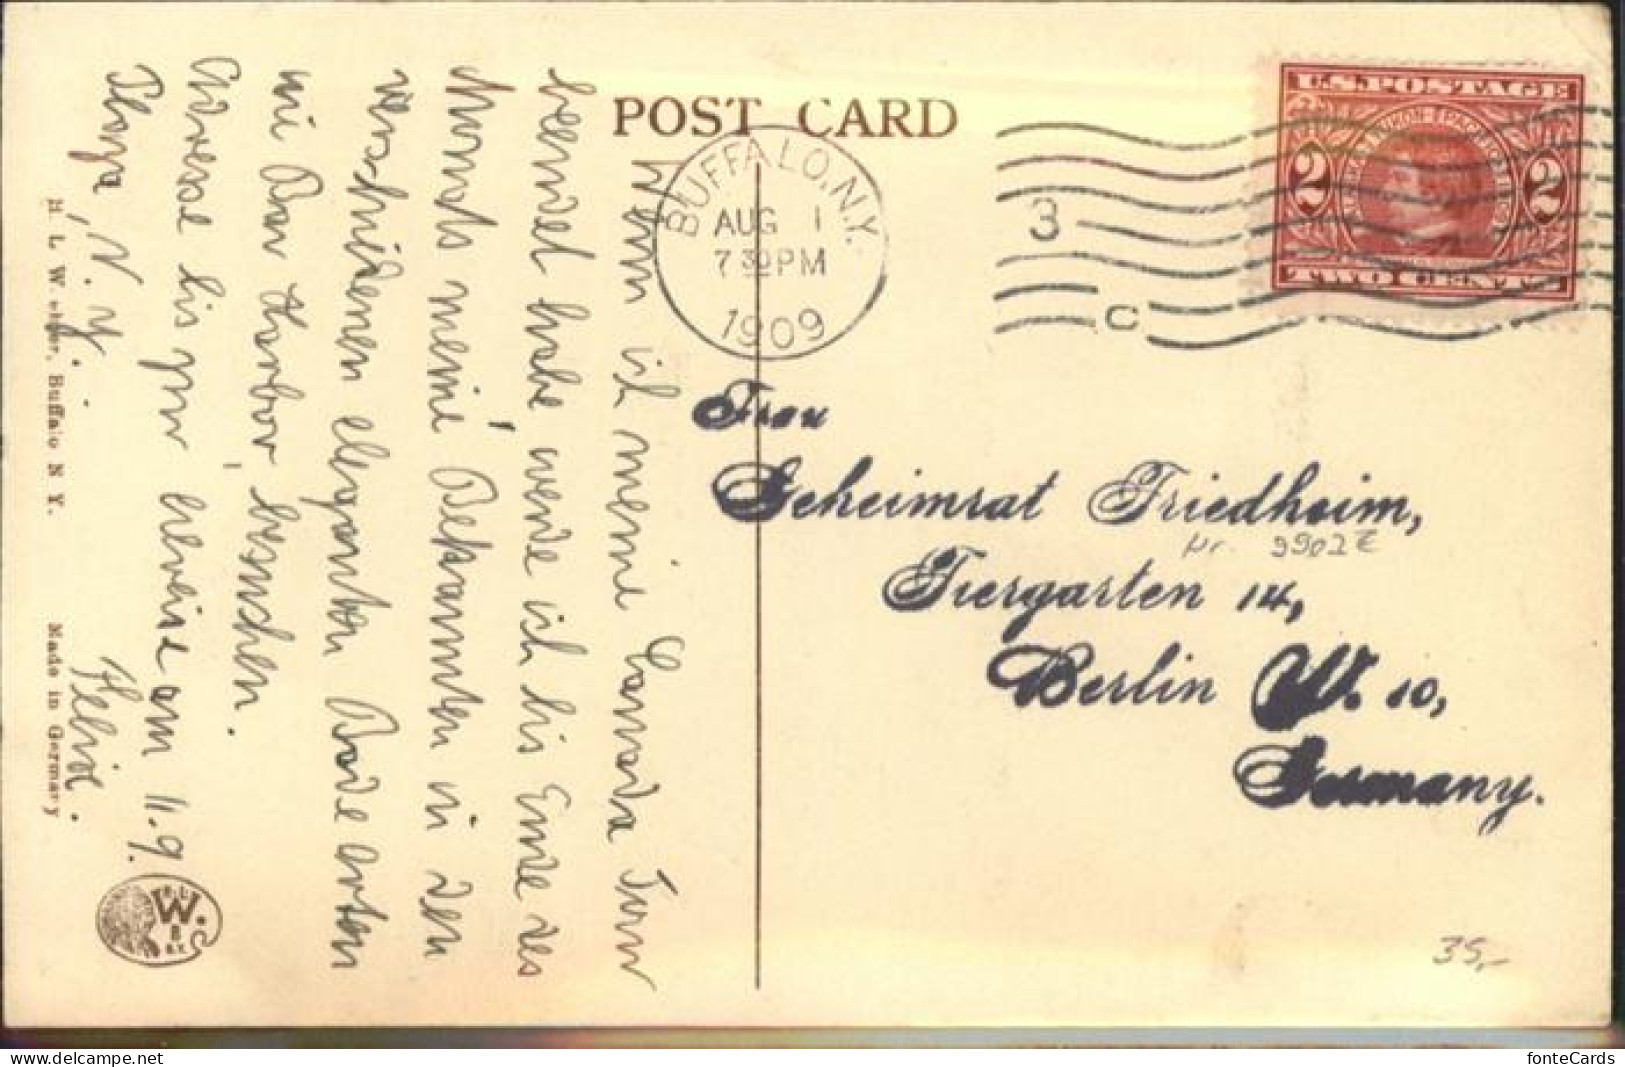 POST CARD
BUFFALO, N.Y.
AUG 1
7 30 PM
1909
3
C
U.S. POSTAGE
2 2
TWO CENTS
Frau
Geheimrat Friedheim,
Nr. 9902 E
Tiergarten 14,
Berlin W. 10,
Germany.
35,-
Wenn ich meine Canada Tour
beendet habe werde ich bis Ende des
Monats meine Bekannten in den
verschiedenen eleganten Badeorten
wie Bar Harbor besuchen.
Adresse bis zur am 11.9.
N. Y.
H. L. Weber, Buffalo N. Y.
Made in Germany
W.
fonteCards